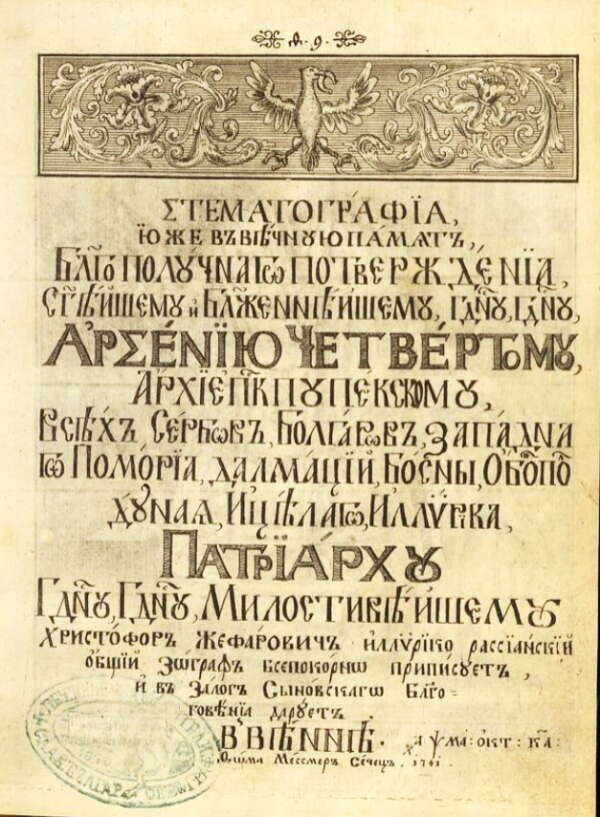 СТЕМАТОГРА́ФЇА,
Ю҆́ЖЕ ВЪ ВѢ́ЧНУЮ ПА́МАТЬ,
БЛГ҃ОПОЛУ́ЧНАГѠ ПОТВЕРЖДЕ́НЇА,
СТ҃ѢЙШЕМУ И҆ БЛ҃ЖЕННѢЙШЕМУ, ГДⷭ҇НУ, ГДⷭ҇НУ,
А҆РСЕ́НЇЮ ЧЕТВЕ́РТОМУ,
А҆РХЇЕПⷭ҇КПУ ПЕКСКОМУ,
ВСѢ́ХЪ СЕ́РБѠВЪ, БОЛГА́РѠВЪ, ЗАПА́ДНА
ГѠ ПОМО́РЇА, ДАЛМА́ЦЇЙ, БО́СНЫ, ОБОПО́
ДУ́НАЯ, И ЦѢ́ЛАГѠ, ИЛЛѴ́РІКА,
ПАТРЇА́РХУ
ГДⷭ҇НУ, ГДⷭ҇НУ, МИЛОСТИВѢ́ЙШЕМУ
ХРИСТО́ФОРЪ ЖЕФА́РОВИЧЪ И҆ЛЛѴ́РІКО РАССЇА́НСКЇЙ
О҆́БЩЇЙ ЗѠ́ГРАФЪ ВСЕПОКОРНѠ ПРИПИСУ́ЕТЪ,
И҆ ВЪ ЗАЛОГЪ СЫНО́ВСКАГѠ БЛГ҃О=
ГОВѢ́НЇА ДАРУ́ЕТЪ.
ВВІЕ́ННѢ. ҂АѰМА: ОКТ: КА:
Ѳома Мессмер Сечецъ. 1741.